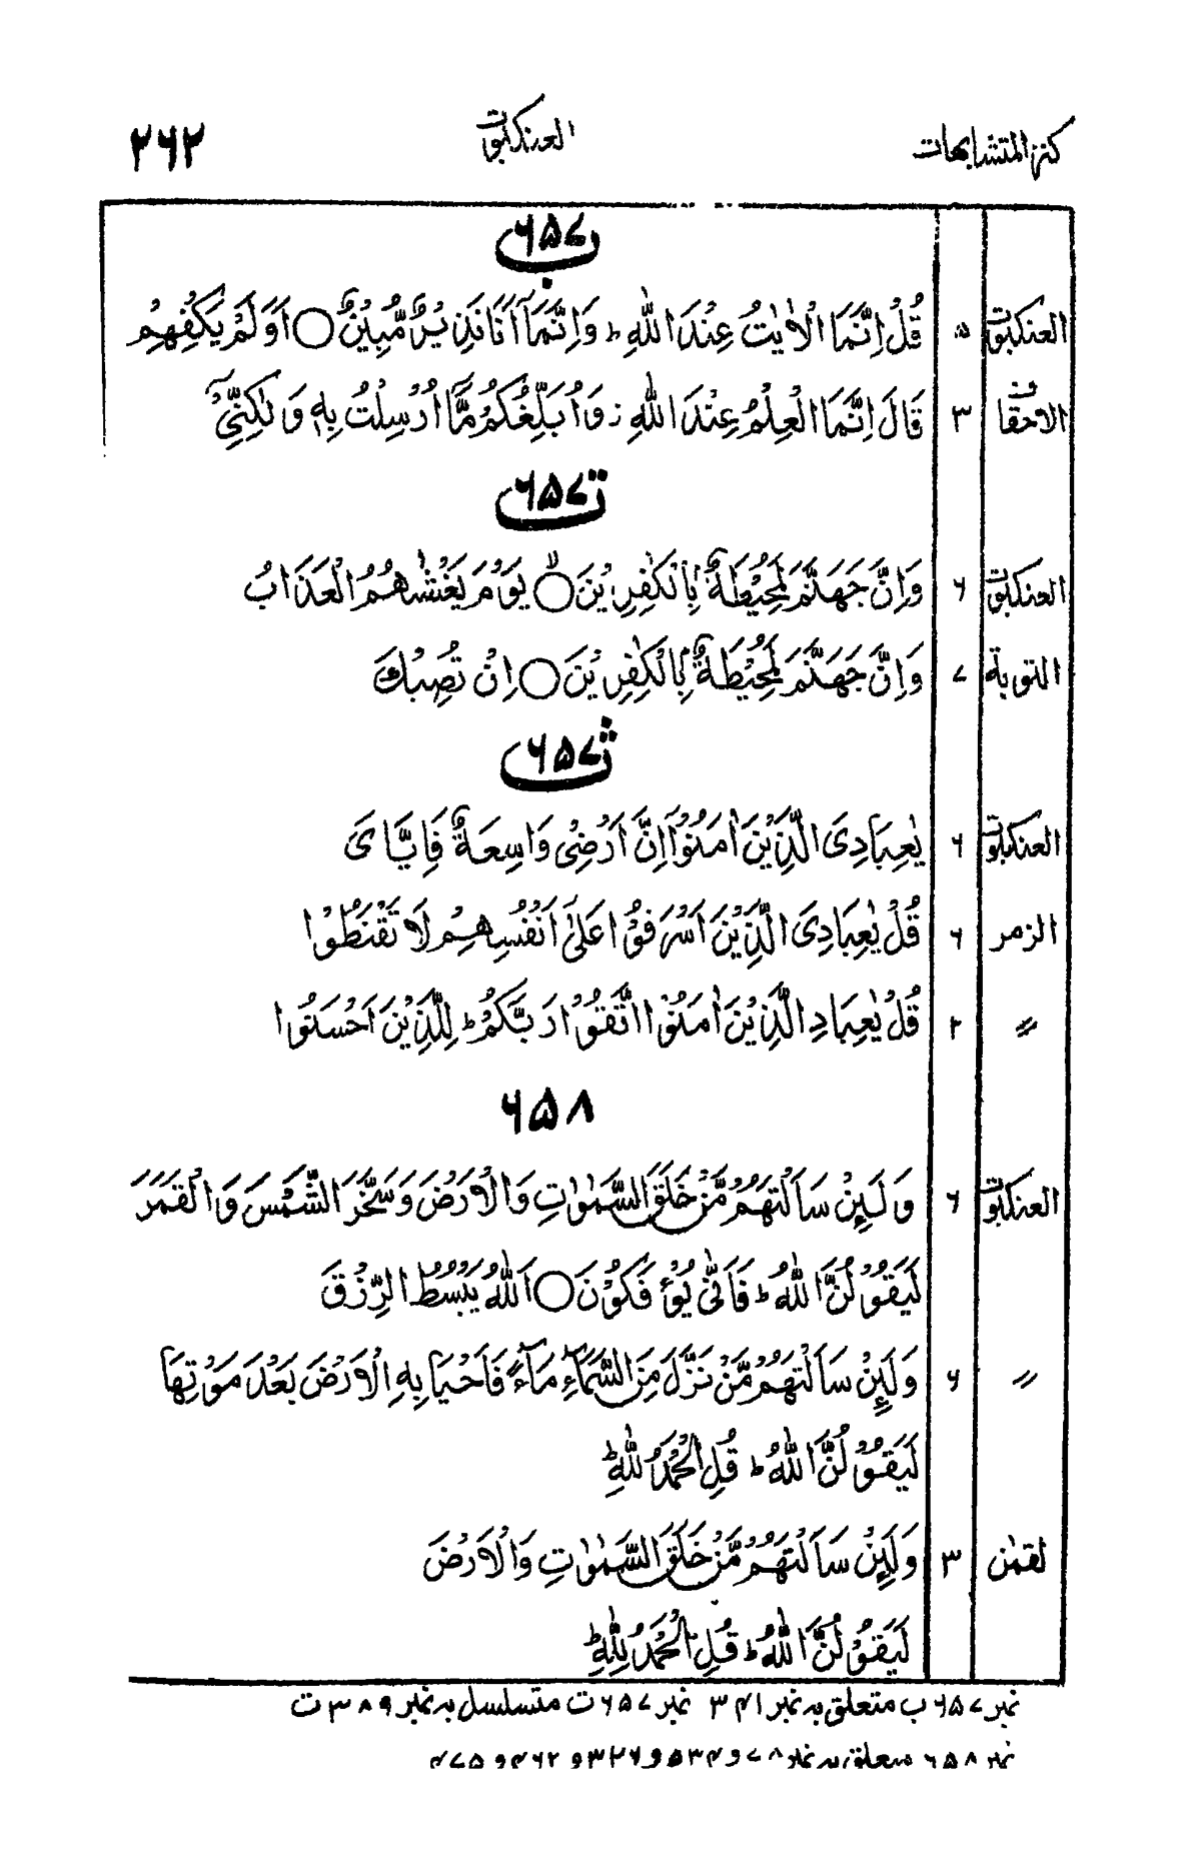 كنز المتشابهات العنكبوت ٢٦٢
٦٥٧ب
العنكبوت ٥ قُلْ اِنَّمَا الْاٰيٰتُ عِنْدَ اللّٰهِ ؕ وَاِنَّمَاۤ اَنَا نَذِيْرٌ مُّبِيْنٌ ○ اَوَلَمْ يَكْفِهِمْ
الاحقاف ٣ قَالَ اِنَّمَا الْعِلْمُ عِنْدَ اللّٰهِ ۫ وَاُبَلِّغُكُمْ مَّاۤ اُرْسِلْتُ بِهٖ وَلٰكِنِّيْۤ
٦٥٧ت
العنكبوت ٦ وَاِنَّ جَهَنَّمَ لَمُحِيْطَةٌۢ بِالْكٰفِرِيْنَ ○ۙ يَوْمَ يَغْشٰىهُمُ الْعَذَابُ
التوبة ٧ وَاِنَّ جَهَنَّمَ لَمُحِيْطَةٌۢ بِالْكٰفِرِيْنَ ○ اِنْ تُصِبْكَ
٦٥٧ث
العنكبوت ٦ يٰعِبَادِىَ الَّذِيْنَ اٰمَنُوْۤا اِنَّ اَرْضِىْ وَاسِعَةٌ فَاِيَّاىَ
الزمر ٦ قُلْ يٰعِبَادِىَ الَّذِيْنَ اَسْرَفُوْا عَلٰۤى اَنْفُسِهِمْ لَا تَقْنَطُوْا
〃 ٢ قُلْ يٰعِبَادِ الَّذِيْنَ اٰمَنُوا اتَّقُوْا رَبَّكُمْ ؕ لِلَّذِيْنَ اَحْسَنُوْا
٦٥٨
العنكبوت ٦ وَلَئِنْ سَاَلْتَهُمْ مَّنْ خَلَقَ السَّمٰوٰتِ وَالْاَرْضَ وَسَخَّرَ الشَّمْسَ وَالْقَمَرَ
لَيَقُوْلُنَّ اللّٰهُ ؕ فَاَنّٰى يُؤْفَكُوْنَ ○ اَللّٰهُ يَبْسُطُ الرِّزْقَ
〃 ٦ وَلَئِنْ سَاَلْتَهُمْ مَّنْ نَّزَّلَ مِنَ السَّمَآءِ مَآءً فَاَحْيَا بِهِ الْاَرْضَ بَعْدَ مَوْتِهَا
لَيَقُوْلُنَّ اللّٰهُ ؕ قُلِ الْحَمْدُ لِلّٰهِ ؕ
لقمٰن ٣ وَلَئِنْ سَاَلْتَهُمْ مَّنْ خَلَقَ السَّمٰوٰتِ وَالْاَرْضَ
لَيَقُوْلُنَّ اللّٰهُ ؕ قُلِ الْحَمْدُ لِلّٰهِ ؕ
نمبر ۶۵۷ب متعلق بہ نمبر ۳۴۱ نمبر ۶۵۷ت متسلسل بہ نمبر ۳۸۹ت
نمبر ۶۵۸ متعلق بہ نمبر